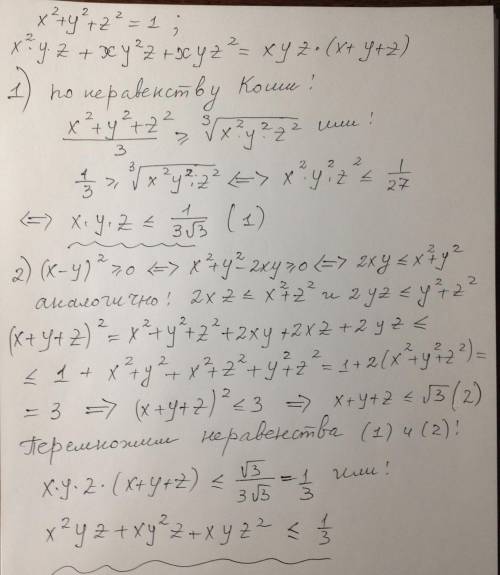 x²+y²+z²=1 ;
x²·y·z + xy²z + xyz² = xyz·(x+y+z)
1) по неравенству Коши!
(x²+y²+z²)/3 ≥ ∛(x²·y²·z²) или!
1/3 ≥ ∛(x²y²·z²) <=> x²·y²·z² ≤ 1/27
<=> x·y·z ≤ 1/(3√3) (1)
2) (x-y)² ≥ 0 <=> x²+y²-2xy ≥ 0 <=> 2xy ≤ x²+y²
аналогично! 2xz ≤ x²+z² и 2yz ≤ y²+z²
(x+y+z)² = x²+y²+z²+2xy+2xz+2yz ≤
≤ 1 + x²+y²+x²+z²+y²+z² = 1+2(x²+y²+z²) =
= 3 => (x+y+z)² ≤ 3 => x+y+z ≤ √3 (2)
Перемножим неравенства (1) и (2)!
x·y·z·(x+y+z) ≤ √3/(3√3) = 1/3 или!
x²yz + xy²z + xyz² ≤ 1/3